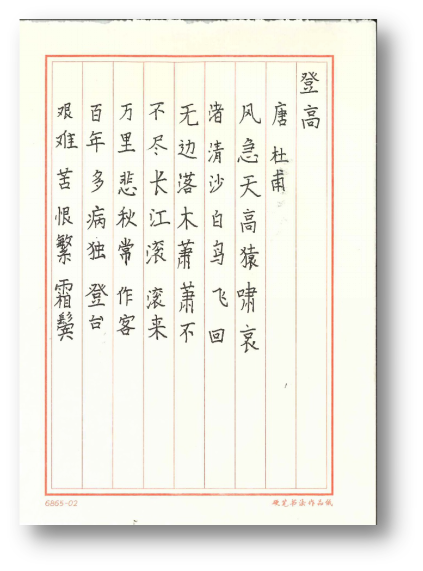 登高
唐 杜甫
风急天高猿啸哀
渚清沙白鸟飞回
无边落木萧萧不
不尽长江滚滚来
万里悲秋常作客
百年多病独登台
艰难苦恨繁霜鬓
6868-02
硬笔书法作品纸